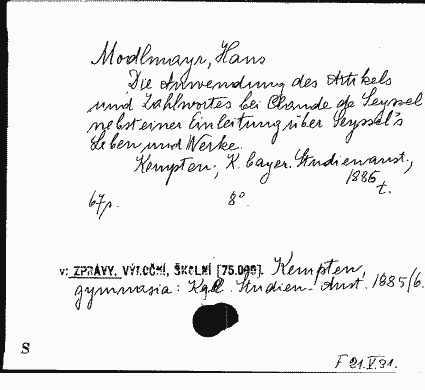 Modlmayr, Hans
Die Anwendung des Artikels
und Zahlwortes bei Claude de Seyssel
nebst einer Einleitung über Seyssel's
Leben und Werke.
Kempten, K. bayer. Studienanst.,
1886
t.
67p. 8°.
v: ZPRÁVY, VÝROČNÍ, ŠKOLNÍ [75.090]. Kempten,
gymnasia: Kgl. Studien-Anst. 1885/6.
S
F 21.V.31.